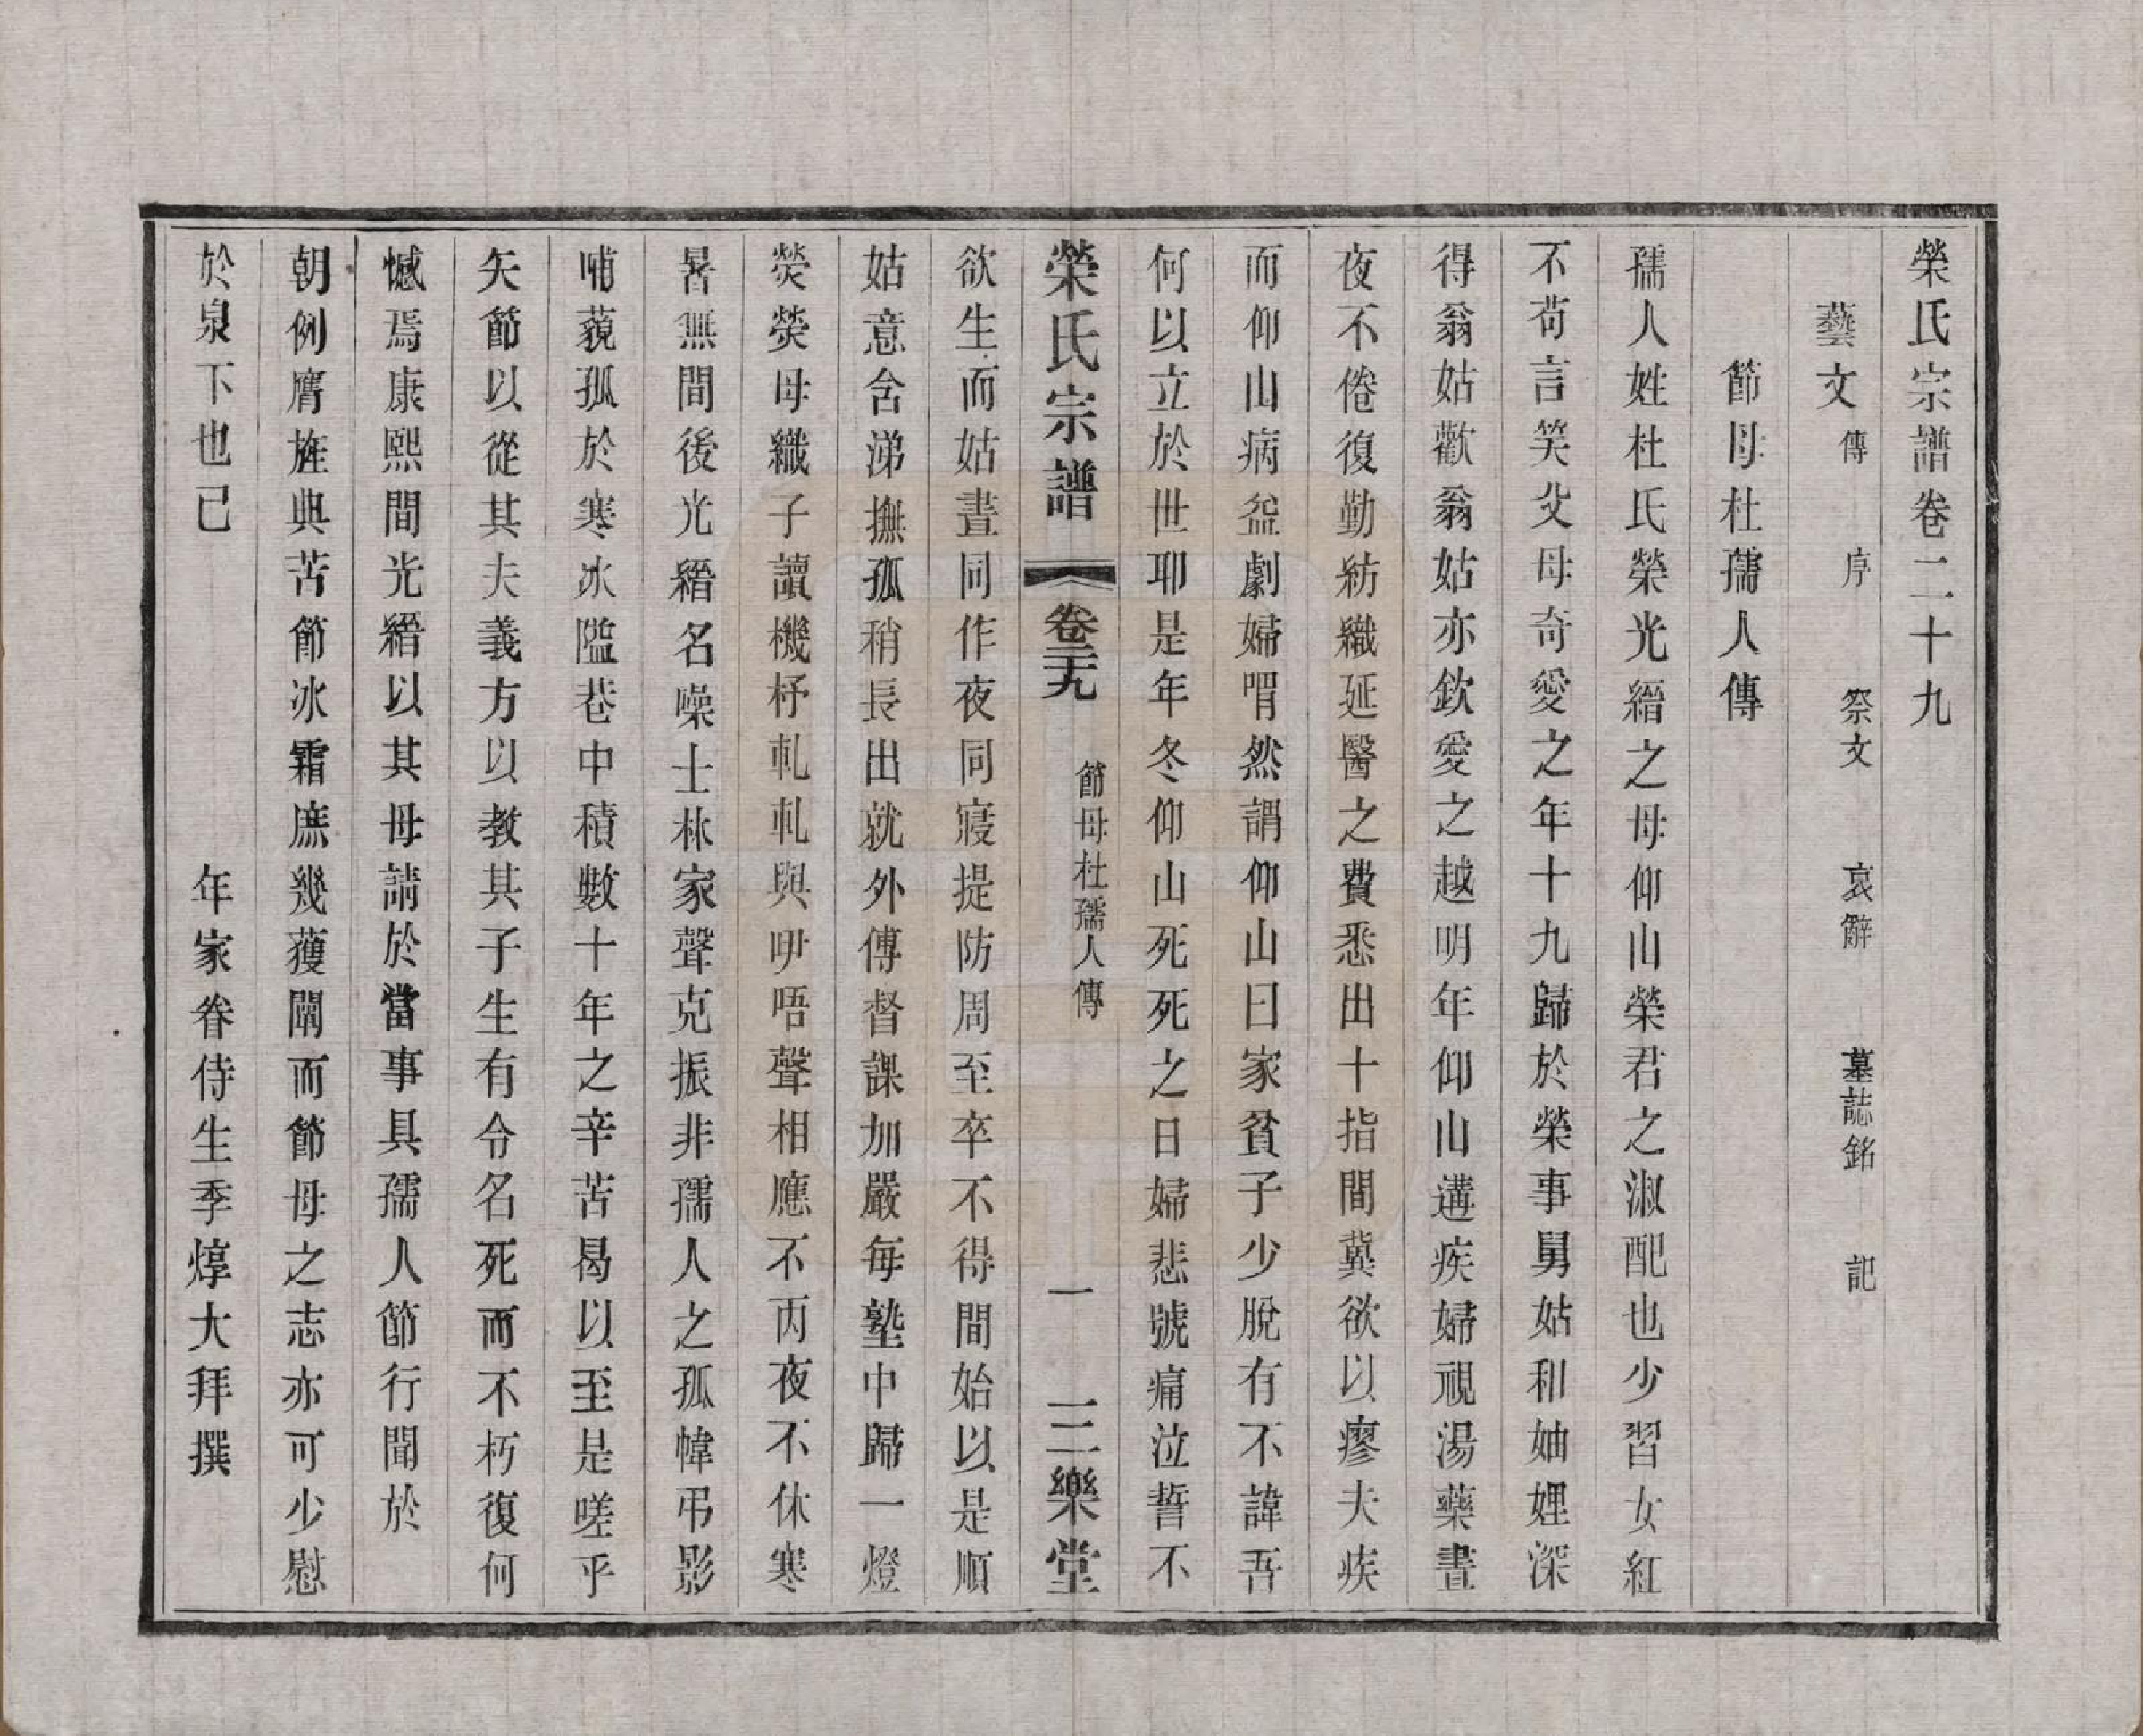 榮氏宗譜卷二十九
藝文傳 序 祭文 哀辭 墓誌銘 記
節母杜孺人傳
孺人姓杜氏榮光縉之母仰山榮君之淑配也少習女紅
不苟言笑父母奇愛之年十九歸於榮事舅姑和妯娌深
得翁姑歡翁姑亦欽愛之越明年仰山遘疾婦視湯藥晝
夜不倦復勤紡織延醫之費悉出十指間冀欲以瘳夫疾
而仰山病益劇婦喟然謂仰山曰家貧子少脫有不諱吾
何以立於世耶是年冬仰山死死之日婦悲號痛泣誓不
榮氏宗譜 卷二十九 節母杜孺人傳 一 三樂堂
欲生而姑晝同作夜同寢提防周至卒不得間始以是順
姑意含涕撫孤稍長出就外傅督課加嚴每塾中歸一燈
熒熒母織子讀機杼軋軋與咿唔聲相應不丙夜不休寒
暑無間後光縉名噪士林家聲克振非孺人之孤幃弔影
哺藐孤於寒冰隘巷中積數十年之辛苦曷以至是嗟乎
矢節以從其夫義方以教其子生有令名死而不朽復何
憾焉康熙間光縉以其母請於當事具孺人節行聞於
朝例膺旌典苦節冰霜庶幾獲闡而節母之志亦可少慰
於泉下也已
年家眷侍生季焞大拜撰